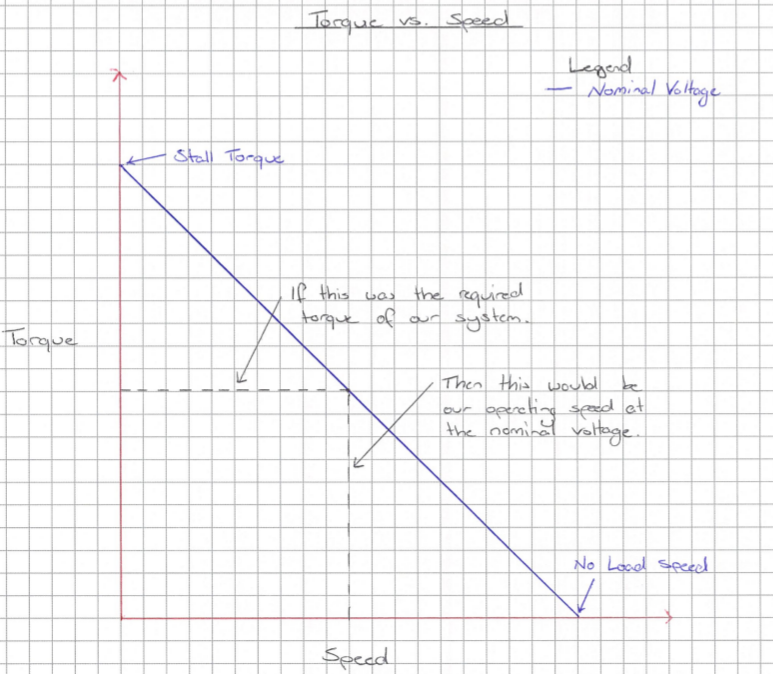 Torque vs. Speed
Legend
Nominal Voltage
Stall Torque
If this was the required
torque of our system.
Torque
Then this would be
our operating speed at
the nominal voltage.
No Load Speed
Speed